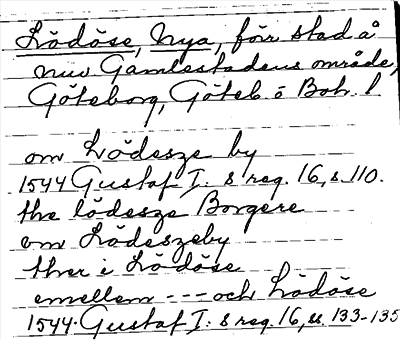 Lödöse, Nya, förr stad å
nuv. Gamlestadens område,
Göteborg, Göteb. o Boh. l
om Lödesze by
1544 Gustaf I:s reg. 16, s. 110.
the lödesze Borgere
om Lödeszeby
ther i Lödöse
emellem --- och Lödöse
1544. Gustaf I:s reg. 16, ss. 133-135